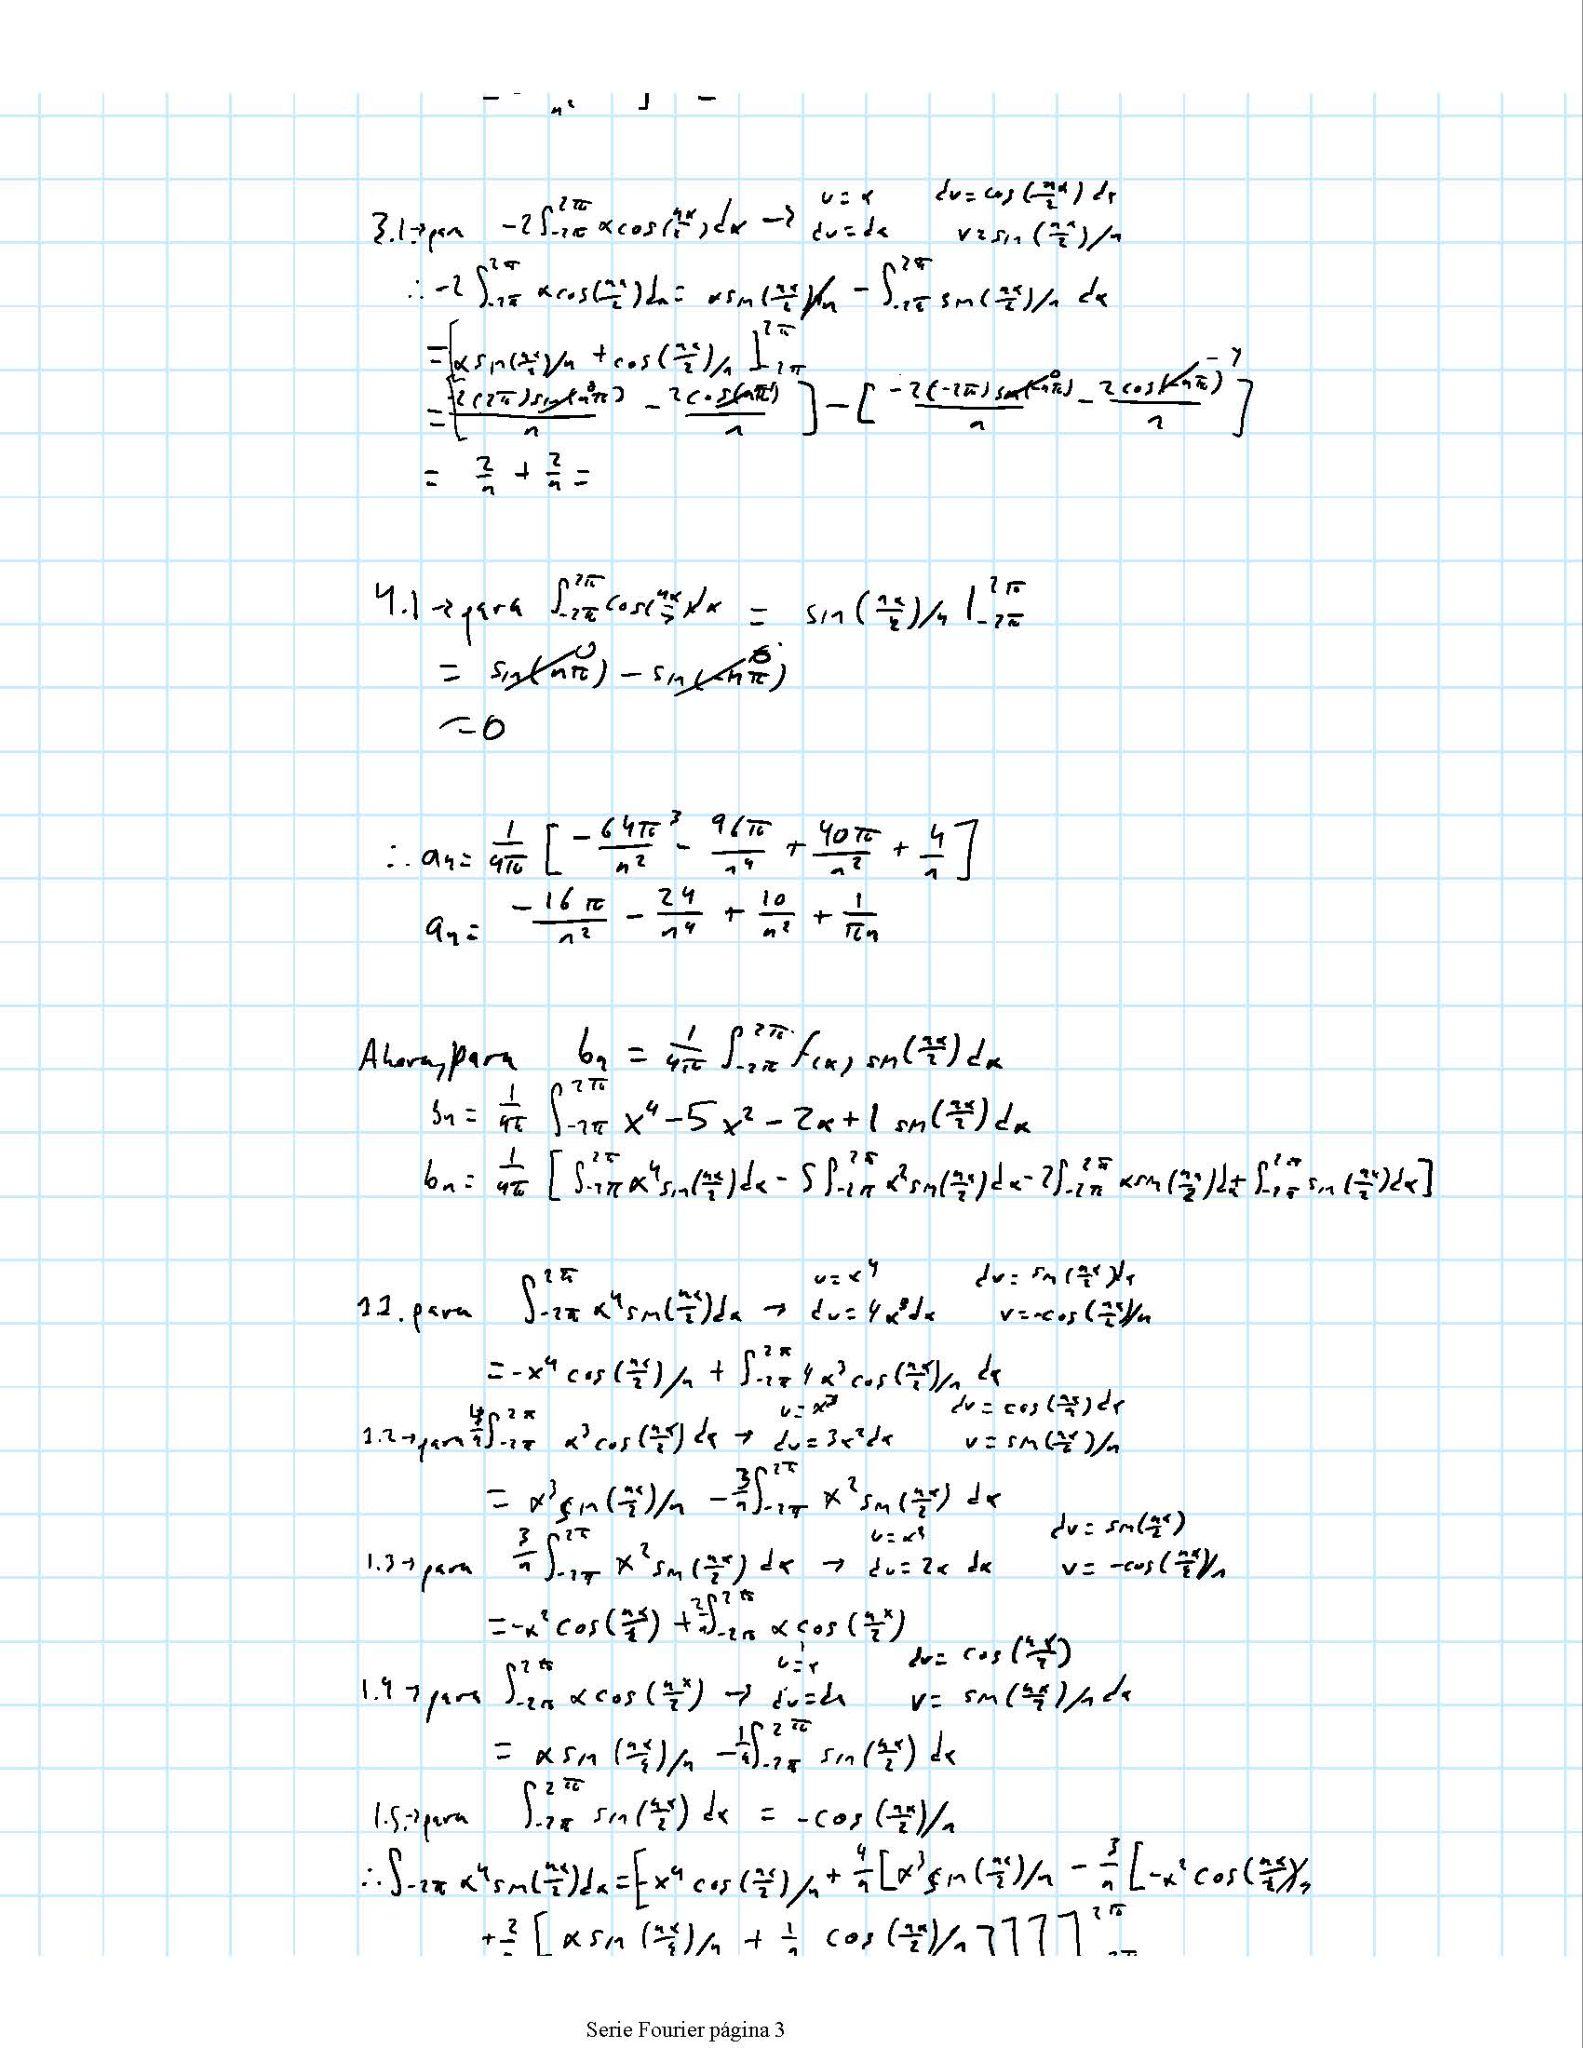 3.1→para -2∫_{-2π}^{2π} x cos(nx/2) dx → u = x dv = cos(nx/2) dx
du = dx v = sin(nx/2)/n
∴ -2∫_{-2π}^{2π} x cos(nx/2) dx = x sin(nx/2)/n - ∫_{-2π}^{2π} sin(nx/2)/n dx
= [x sin(nx/2)/n + cos(nx/2)/n]_{-2π}^{2π}
= [-2(2π) sin(nπ)/n - 2cos(nπ)/n] - [-2(-2π) sin(-nπ)/n - 2cos(-nπ)/n]
= 2/n + 2/n =
4.1→para ∫_{-2π}^{2π} cos(nx/2) dx = sin(nx/2)/n |_{-2π}^{2π}
= sin(nπ) - sin(-nπ)
= 0
∴ an = 1/4π [-64π^3/n^2 - 96π/n^4 + 40π/n^2 + 4/n]
an = -16π/n^2 - 24/n^4 + 10/n^2 + 1/πn
Ahora, para bn = 1/4π ∫_{-2π}^{2π} f(x) sin(nx/2) dx
bn = 1/4π ∫_{-2π}^{2π} x^4 - 5x^2 - 2x + 1 sin(nx/2) dx
bn = 1/4π [∫_{-2π}^{2π} x^4 sin(nx/2) dx - 5∫_{-2π}^{2π} x^2 sin(nx/2) dx - 2∫_{-2π}^{2π} x sin(nx/2) dx + ∫_{-2π}^{2π} sin(nx/2) dx]
1.1. para ∫_{-2π}^{2π} x^4 sin(nx/2) dx → u = x^4 dv = sin(nx/2) dx
du = 4x^3 dx v = -cos(nx/2)/n
= -x^4 cos(nx/2)/n + ∫_{-2π}^{2π} 4x^3 cos(nx/2)/n dx
1.2→para 4/n ∫_{-2π}^{2π} x^3 cos(nx/2) dx → u = x^3 dv = cos(nx/2) dx
du = 3x^2 dx v = sin(nx/2)/n
= x^3 sin(nx/2)/n - 3/n ∫_{-2π}^{2π} x^2 sin(nx/2) dx
1.3→para 3/n ∫_{-2π}^{2π} x^2 sin(nx/2) dx → dv = sin(nx/2)
du = 2x dx v = -cos(nx/2)/n
= -x^2 cos(nx/2) + 2/n ∫_{-2π}^{2π} x cos(nx/2)
1.4→para ∫_{-2π}^{2π} x cos(nx/2) → u = x dv = cos(nx/2)
du = dx v = sin(nx/2)/n dx
= x sin(nx/2)/n - 1/n ∫_{-2π}^{2π} sin(nx/2) dx
1.5→para ∫_{-2π}^{2π} sin(nx/2) dx = -cos(nx/2)/n
∴ ∫_{-2π} x^4 sin(nx/2) dx = [-x^4 cos(nx/2)/n + 4/n [x^3 sin(nx/2)/n - 3/n [-x^2 cos(nx/2)/n
+ 2/n [x sin(nx/2)/n + 1/n cos(nx/2)/n]]]]_{-2π}^{2π}
Serie Fourier página 3